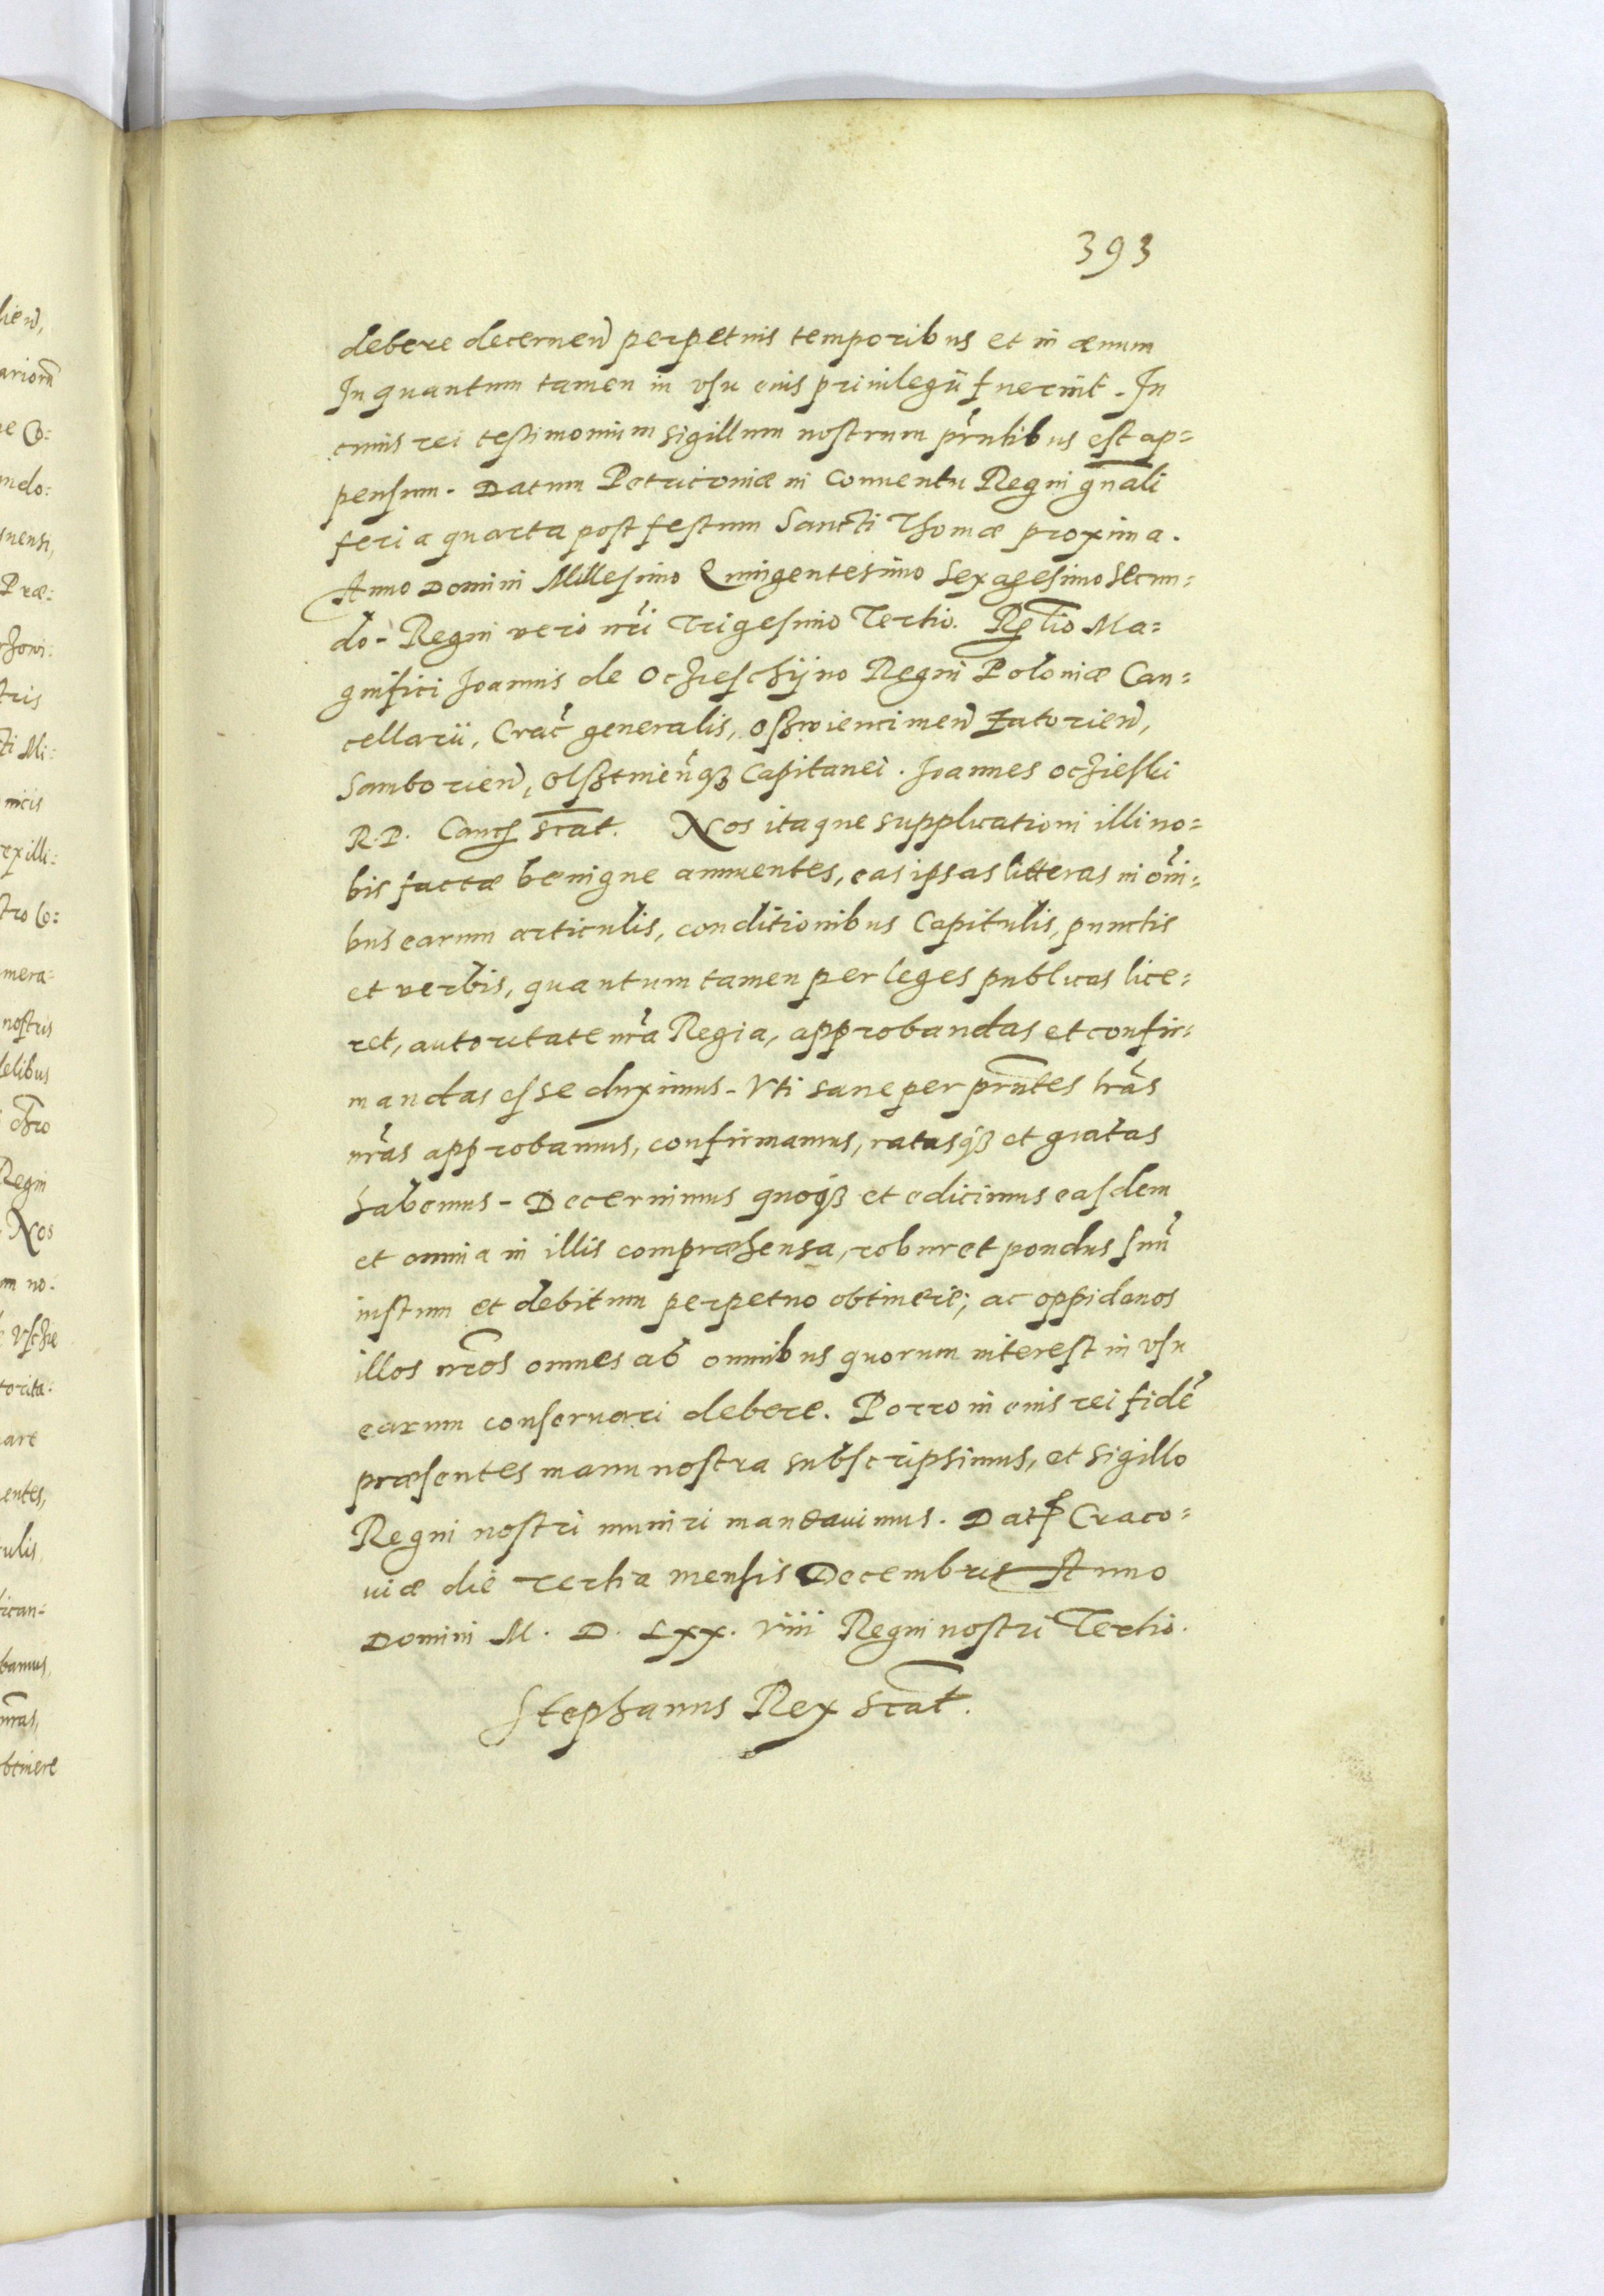 393
debere decernen̄ perpetuis temporibus et in æuum
In quantum tamen in vsu eius priuilegii fuerint. In
cuius rei testimonium sigillum nostrum pn̄tibus est ap=
pensum. Datum Petricouiæ in Conuentu Regni gn̄ali
feria quarta post festum Sancti Thomæ proxima.
Anno Domini Millesimo Quingentesimo Sexagesimo Secun=
do. Regni vero nr̄i Trigesimo Tertio. Rel̄tio Ma=
gnifici Joannis de Oczieschijno Regni Poloniæ Can=
cellarii, Crac̄ generalis, Osswiencimen̄ Zatorien̄,
Samborien̄, Olsstinen̄q3 Capitanei. Joannes Oczieski
R. P. Canc̄ sc̄at. Nos itaque supplicationi illi no=
bis factæ benigne annuentes, eas ipsas litteras in om̄i=
bus earum articulis, conditionibus Capitulis, punctis
et verbis, quantum tamen per leges publicas lice=
ret, autoritate nr̄a Regia, approbandas et confir=
mandas esse duximus. Vti sane per pn̄tes lr̄as
nr̄as approbamus, confirmamus, ratasq3 et gratas
habemus. Decernimus quoq3 et edicimus easdem
et omnia in illis compræhensa, robur et pondus suū
iustum et debitum perpetuo obtinere; ac oppidanos
illos nr̄os omnes ab omnibus quorum interest in vsu
earum conseruari debere. Porro in eius rei fidē
præsentes manu nostra subscripsimus, et sigillo
Regni nostri muniri mandauimus. Dat̄ Craco=
uiæ die tertia mensis Decembris Anno
Domini M. D. Lxx. viii Regni nostri Tertio.
Stephanus Rex sc̄at.